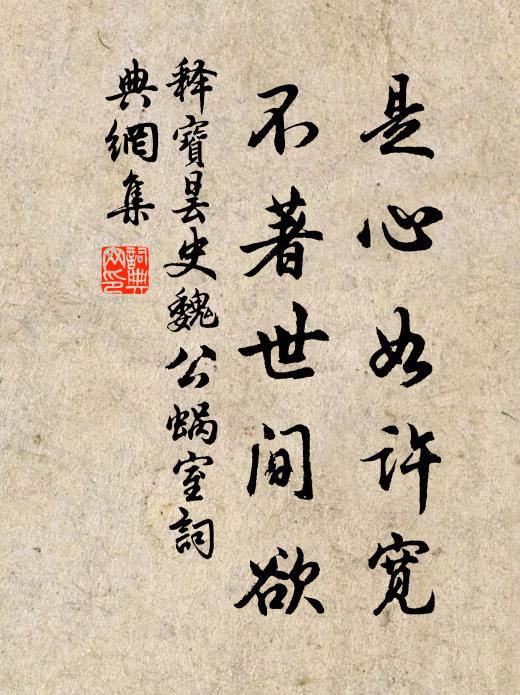 是心如许宽
不著世间欲
释寳昙史魏公蜗室词
典網集
詞典